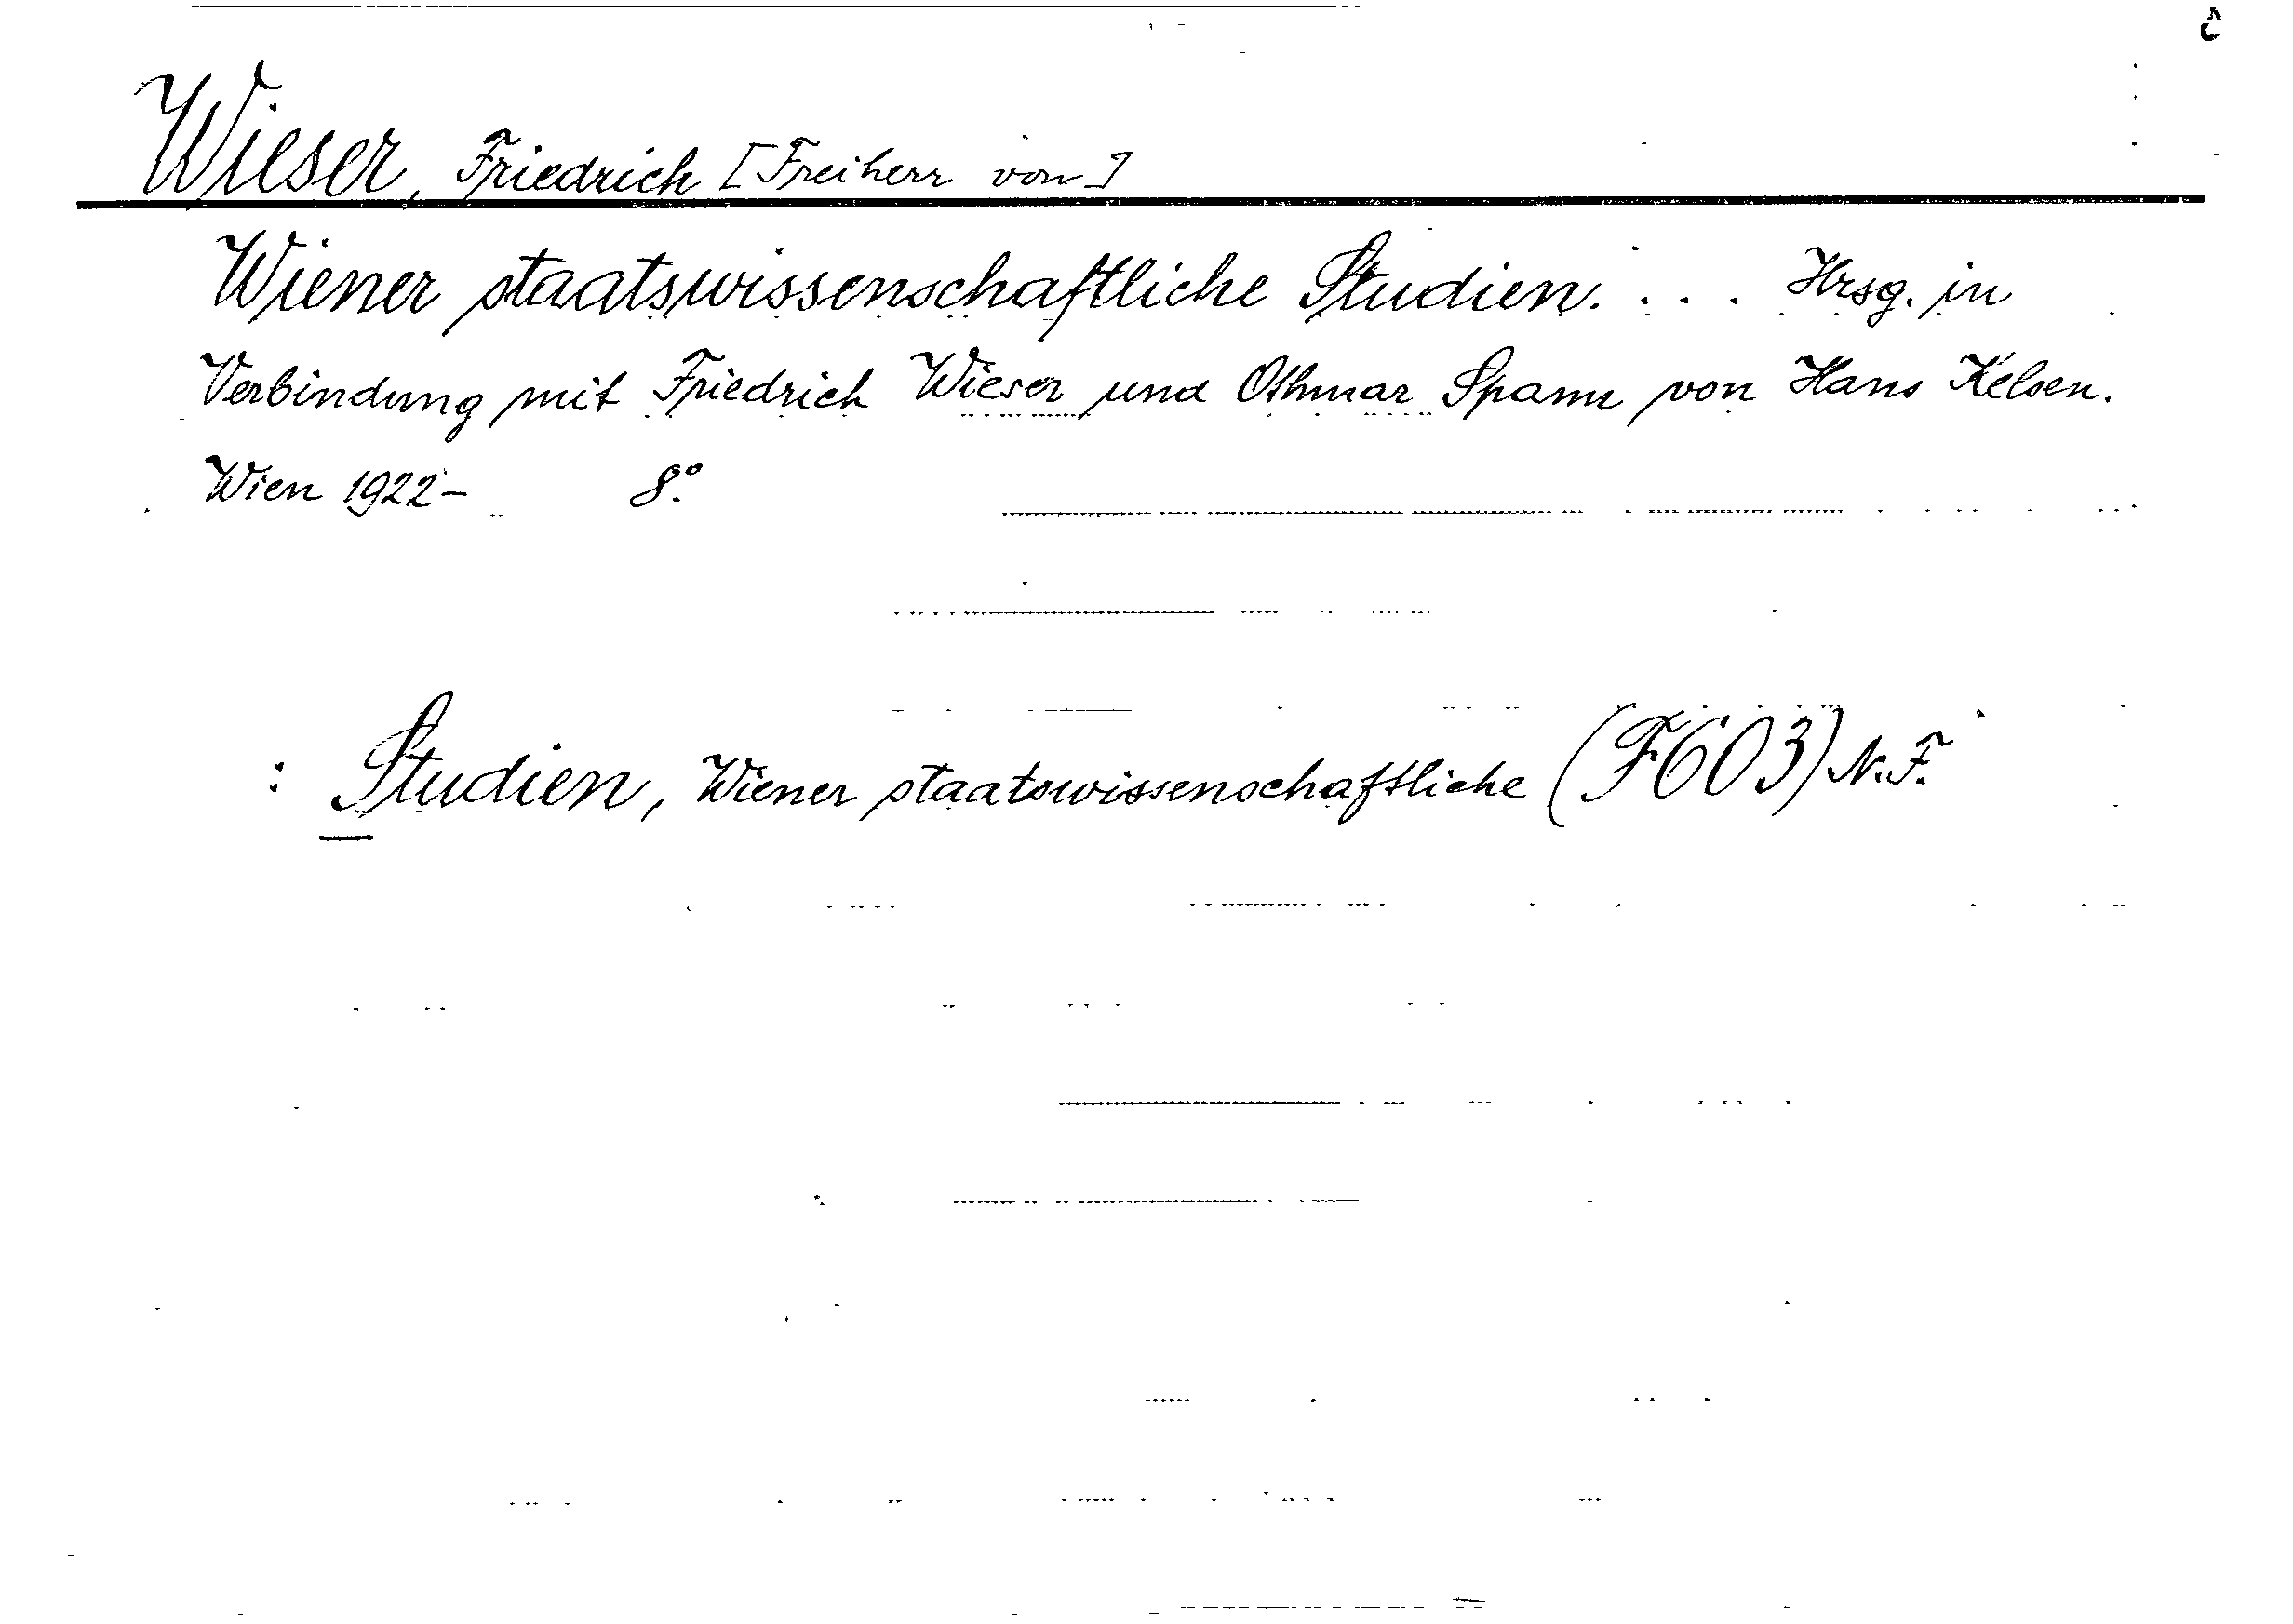 Wieser, Friedrich [Freiherr von]
Wiener staatswissenschaftliche Studien. . . . Hrsg. in
Verbindung mit Friedrich Wieser und Othmar Spann von Hans Kelsen.
Wien 1922- 8°.
: Studien, Wiener staatswissenschaftliche (F603) N.F.